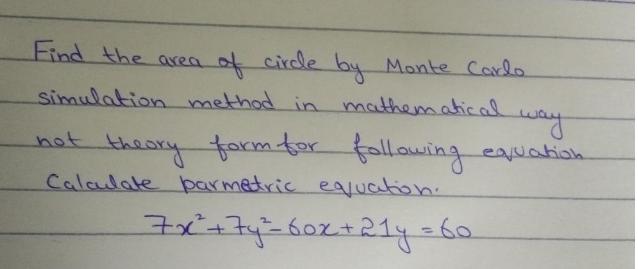 Find the area of circle by Monte Carlo
simulation method in mathematical way
not theory form for following eqvation
Calculate parmetric eqvation.
7x²+7y²-60x+21y=60